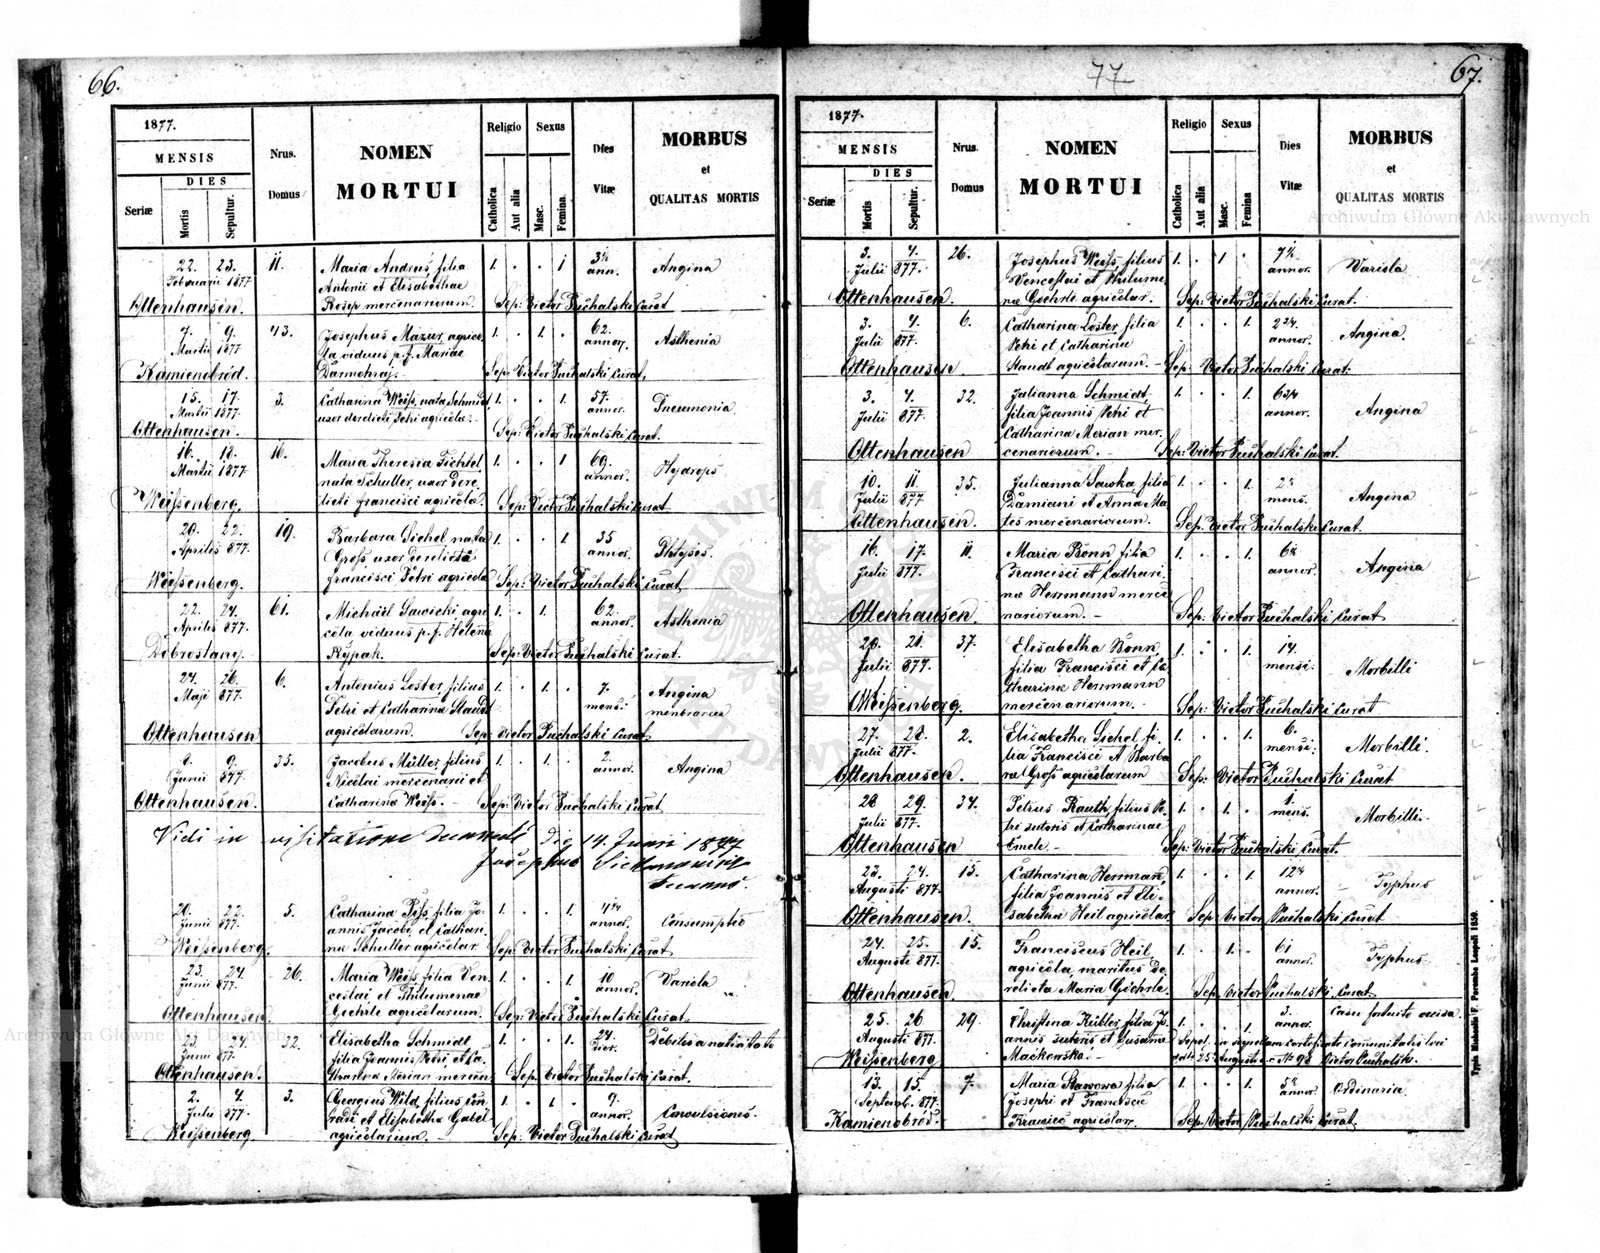 66.
1877.
MENSIS
DIES
Seriæ
Mortis
Sepultur.
Nrus.
Domus
NOMEN
MORTUI
Religio
Catholica
Aut alia
Sexus
Masc.
Femina.
Dies
Vitæ
MORBUS
et
QUALITAS MORTIS
22. 23. 11. Maria Andrus filia 1. . . 1 3½ Angina
Februarii 1877 Antonii et Elisabethae ann.
Ottenhausen. mercenariorum. Sep: Victor Puchalski Curat
7. 9. 43. Josephus Mazur agrico 1. . 1. . 62. Asthenia
Martii 1877 la viduus p. f. Mariae annor.
Kamienobrod. Sep: Victor Puchalski Curat.
15. 17. 3. Catharina Weiss nata Schmidt, 1. . . 1 57. Pneumonia
Martii 1877 uxor derelicti Petri agricola. annor.
Ottenhausen. Sep: Victor Puchalski Curat.
16. 18. 16. Maria Theresia Tichtel 1. . . 1 69. Hydrops
Martii 1877 nata Schuller, uxor dere annor.
Weissenberg. licti Francisci agricola. Sep: Victor Puchalski Curat
20. 22. 19. Barbara Sichel nata 1. . . 1 35
Aprilis 877. Gross uxor derelicta annor.
Weissenberg. Francisci Petri agricola Sep: Victor Puchalski Curat
22. 24. 61. Michaël Sawicki agri 1. . 1. 62. Asthenia
Aprilis 877. cola viduus p. f. Helena annor.
Dobrostany. Rypak. Sep: Victor Puchalski Curat.
24. 26. 6. Antonius Loster filius 1. . 1. . 7. Angina
Maji 877. Petri et Catharina Staudt mens.
Ottenhausen agricolarum. Sep: Victor Puchalski Curat
9. 35. Jacobus Müller filius 1. . 1. . 2. Angina
Junii 877. Nicolai mercenarii et annor.
Ottenhausen. Catharina Weiss. Sep: Victor Puchalski Curat
Vidi in visitatione die 14. Junii 1877
Josephus
20. 22. 5. Catharina filia Jo 1. . . 1. Consumptio
Junii 877. annis Jacobi et Cathari annor.
Weissenberg. na Schuller agricolar Sep: Victor Puchalski Curat
23. 24. 26. Maria Weiss filia Ven 1. . . 1. 10 Variola
Junii 877. ceslai et Philumenae annor.
Ottenhausen. Goehrle agricolarum. Sep: Victor Puchalski Curat.
23 24 32. Elisabetha Schmidt 1. . . 1. 24. Debilis a nativitate
Junii 877. filia Joannis Petri et Ca dier.
Ottenhausen. tharina Merian mercen. Sep: Victor Puchalski Curat.
2. 4. 3. Georgius Wild filius Con 1. . 1 . 9. Convulsiones.
Julii 877. radi et Elisabetha annor.
Weissenberg. agricolarum. Sep: Victor Puchalski Curat
77
67.
1877.
MENSIS
DIES
Seriæ
Mortis
Sepultur.
Nrus.
Domus
NOMEN
MORTUI
Religio
Catholica
Aut alia
Sexus
Masc.
Femina
Dies
Vitæ
MORBUS
et
QUALITAS MORTIS
3. 4. 26. Josephus Weiss filius 1. . 1 . 7½ Variola
Julii 877. Venceslai et Philume annor.
Ottenhausen. næ Goehrle agricolar. Sep: Victor Puchalski Curat.
3. 4. 6. Catharina Loster filia 1. . . 1. 2 3/4 Angina.
Julii 877. Petri et Catharina annor.
Ottenhausen Staudt agricolarum. Sep: Victor Puchalski Curat.
3. 4. 32. Julianna Schmidt, 1. . . 1. 6 3/4 Angina
Julii 877. filia Joannis Petri et annor.
Ottenhausen Catharina Merian mer
cenariorum. Sep: Victor Puchalski Curat.
10. 11. 35. Julianna Sawka filia 1. . . 1. Angina
Julii 877 Damiani et Anna Ma mens.
Ottenhausen. mercenariorum. Sep: Victor Puchalski Curat.
16. 17. 11. Maria Bonn filia 1. . . 1. Angina
Julii 877. Francisci et Cathari annor.
næ Herrmann merce
Ottenhausen. nariorum. Sep: Victor Puchalski Curat
20. 21. 37. Elisabetha Bonn 1. . . 1. 14. Morbilli
Julii 877. filia Francisci et Ca mensi.
tharina Herrmann
Weissenberg. mercenariorum. Sep: Victor Puchalski Curat
27. 28. 2. Elisabetha Sichel fi 1. . . 1. 6. Morbilli.
Julii 877. lia Francisci et Barba mensi.
Ottenhausen. ræ Gross agricolarum Sep: Victor Puchalski Curat
28 29. 34. Petrus Rauth filius Pe 1. . 1. . 1. Morbilli.
Julii 877. tri sutoris et Catharinae mens.
Ottenhausen Emele. Sep: Victor Puchalski Curat.
23. 24. 15. Catharina Herrman, 1. . . 1. Typhus
Augusti 877. filia Joannis et Eli annor.
Ottenhausen. sabetha Heil agricolar Sep: Victor Puchalski Curat
24. 25. 15. Franciscus Heil, 1. . 1. . 61 Typhus
Augusti 877. agricola, maritus de annor.
Ottenhausen. relicta Maria Goehrle. Sep: Victor Puchalski Curat
25. 26 29. Christina Kübler, filia Jo 1. . . 1. 3. Casu fortuito occisa.
Augusti 877. annis sutoris et Susanna annor. Sepel. in sequellam certificate communitatis loci
Weissenberg Mackowska. 25 Augusti Nº 98 Victor Puchalski.
13. 15. 7. Maria filia 1. . . 1. Ordinaria.
Septemb. 877. Josephi et Franciscæ annor.
Kamienobrod. agricolar. Sep: Victor Puchalski Curat.
Typis Michaelis F. Poremba Leopoli 1859.
Archiwum Główne Akt Dawnych
Archiwum Główne Akt Dawnych